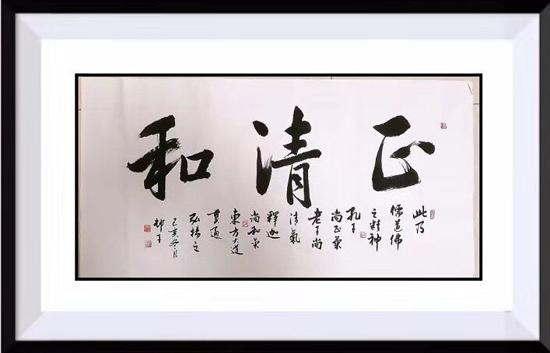 正清和
此乃
儒道佛
之精神
孔子
尚正氣
老子尚
清氣
釋迦
尚和氣
東方大道
貫通
弘揚之
己亥冬月